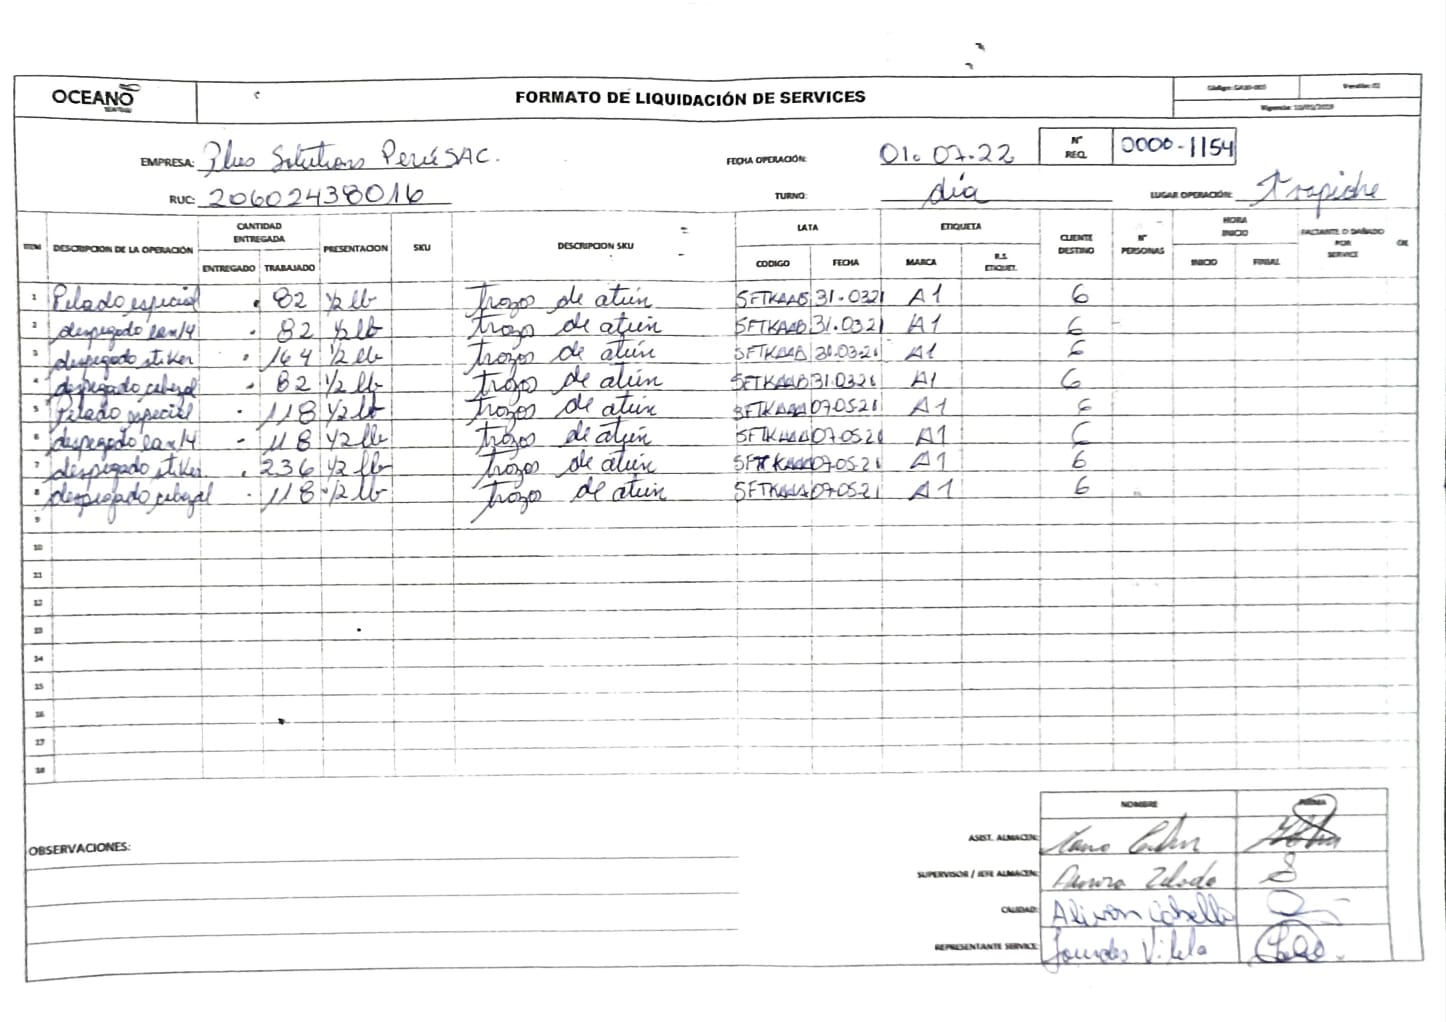 OCEANO
FORMATO DE LIQUIDACIÓN DE SERVICES
Código: GA10-003 Versión: 02
Vigencia: 10/05/2019
EMPRESA: Plus Solutions Perú SAC.
FECHA OPERACIÓN: 01.07.22
N° REQ. 0000-1154
RUC: 20602438016
TURNO: día
LUGAR OPERACIÓN: Trapiche
ITEM DESCRIPCION DE LA OPERACIÓN CANTIDAD ENTREGADA PRESENTACION SKU DESCRIPCION SKU LATA ETIQUETA CLIENTE DESTINO N° PERSONAS HORA INICIO FALTANTE O DAÑADO POR SERVICE
ENTREGADO TRABAJADO CODIGO FECHA MARCA R.S. ETIQUET. INICIO FINAL
1 Pelado especial 82 1/2 lb trozos de atún SFTKAAB 31.0321 A1 6
2 despegado 82 1/2 lb trozo de atún SFTKAAB 31.03.21 A1 6
3 despegado stiker 164 1/2 lb trozos de atún SFTKAAB 31.03.21 A1 6
4 despegado cabezal 82 1/2 lb trozos de atún SFTKAAB 31.0321 A1 6
5 Pelado especial 118 1/2 lb trozos de atún SFTKAAA 07.05.21 A1 6
6 despegado 118 1/2 lb trozos de atún SFTKAAA 07-05-21 A1 6
7 despegado stiker 236 1/2 lb trozos de atún SFTKAAA 07-05-21 A1 6
8 despregado cabezal 118 1/2 lb trozos de atún SFTKAAA 07-05-21 A1 6
9
10
11
12
13
14
15
16
17
18
NOMBRE FIRMA
OBSERVACIONES:
ASIST. ALMACEN:
SUPERVISOR / JEFE ALMACEN:
CALIDAD:
REPRESENTANTE SERVICE: Lourdes Vilela